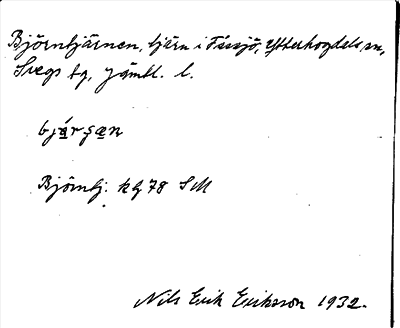 Björntjärnen, tjärn i Fåssjö, Ytterhogdals sn,
Svegs tg, Jämtl. l.
bjä́rşæn
Björntj. kbl 78 SM
Nils Erik Eriksson 1932.